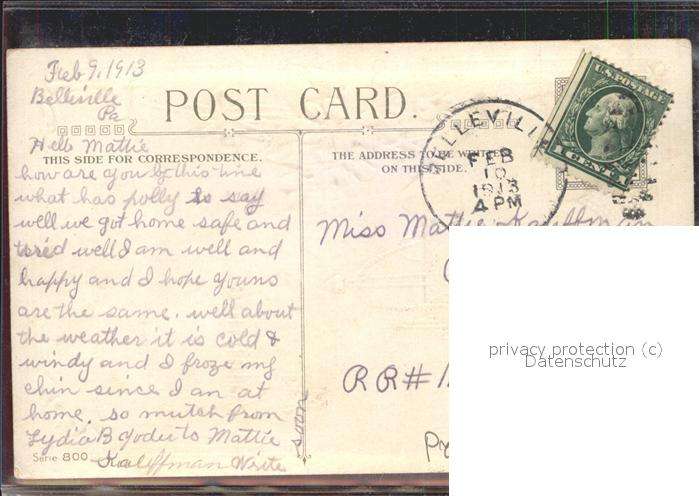 Feb 9, 1913
Belleville
Pa
POST CARD.
Hello Mattie
THIS SIDE FOR CORRESPONDENCE.
how are you by this time
what has polly to say
well we got home safe and
tired well I am well and
happy and I hope youns
are the same. well about
the weather it is cold &
windy and I froze my
chin since I am at
home. so mutch from
Lydia B Yoder to Mattie
Kauffman Write
soon
Serie 800
THE ADDRESS TO BE WRITTEN
ON THIS SIDE.
BELLEVILLE
FEB
10
1913
4 PM
U.S. POSTAGE
1 CENT 1
Miss Mattie Kauffman
RR#1
privacy protection (c)
Datenschutz